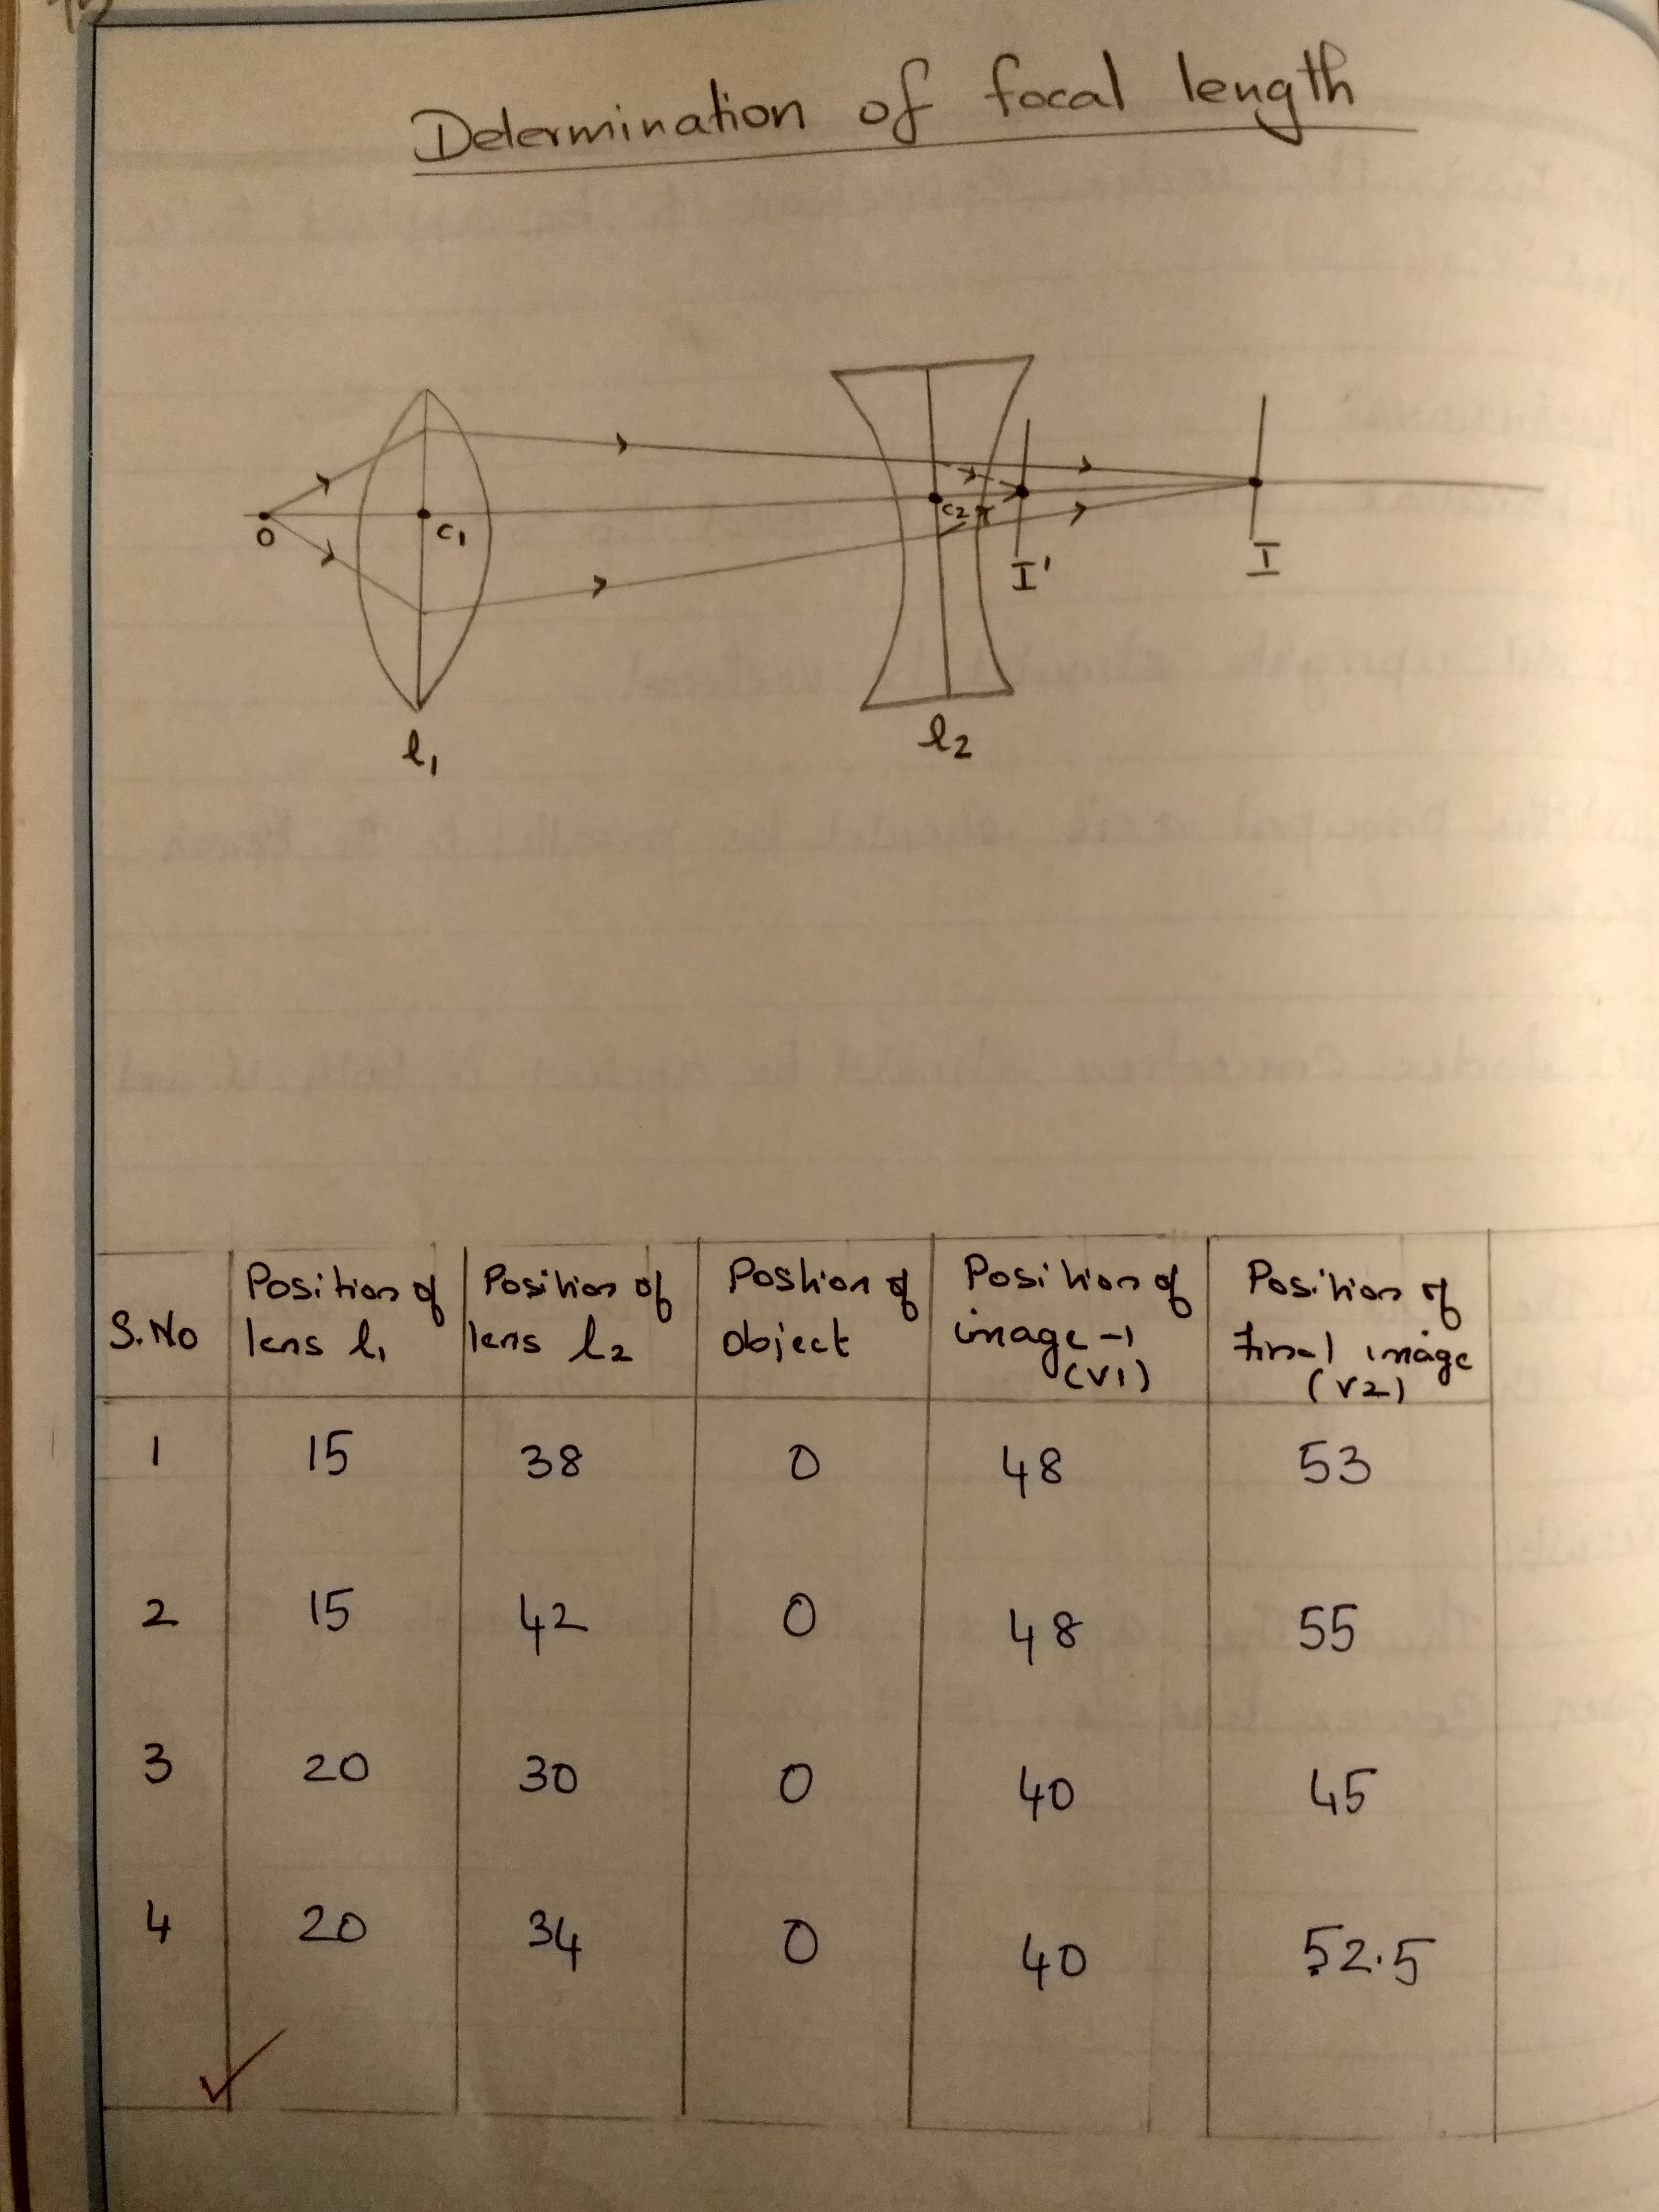 Determination of focal length
O
C1
C2
I'
I
l1
l2
S.No
Position of lens l1
Position of lens l2
Postion of object
Position of image-1 (V1)
Position of final image (V2)
1 15 38 0 48 53
2 15 42 0 48 55
3 20 30 0 40 45
4 20 34 0 40 52.5